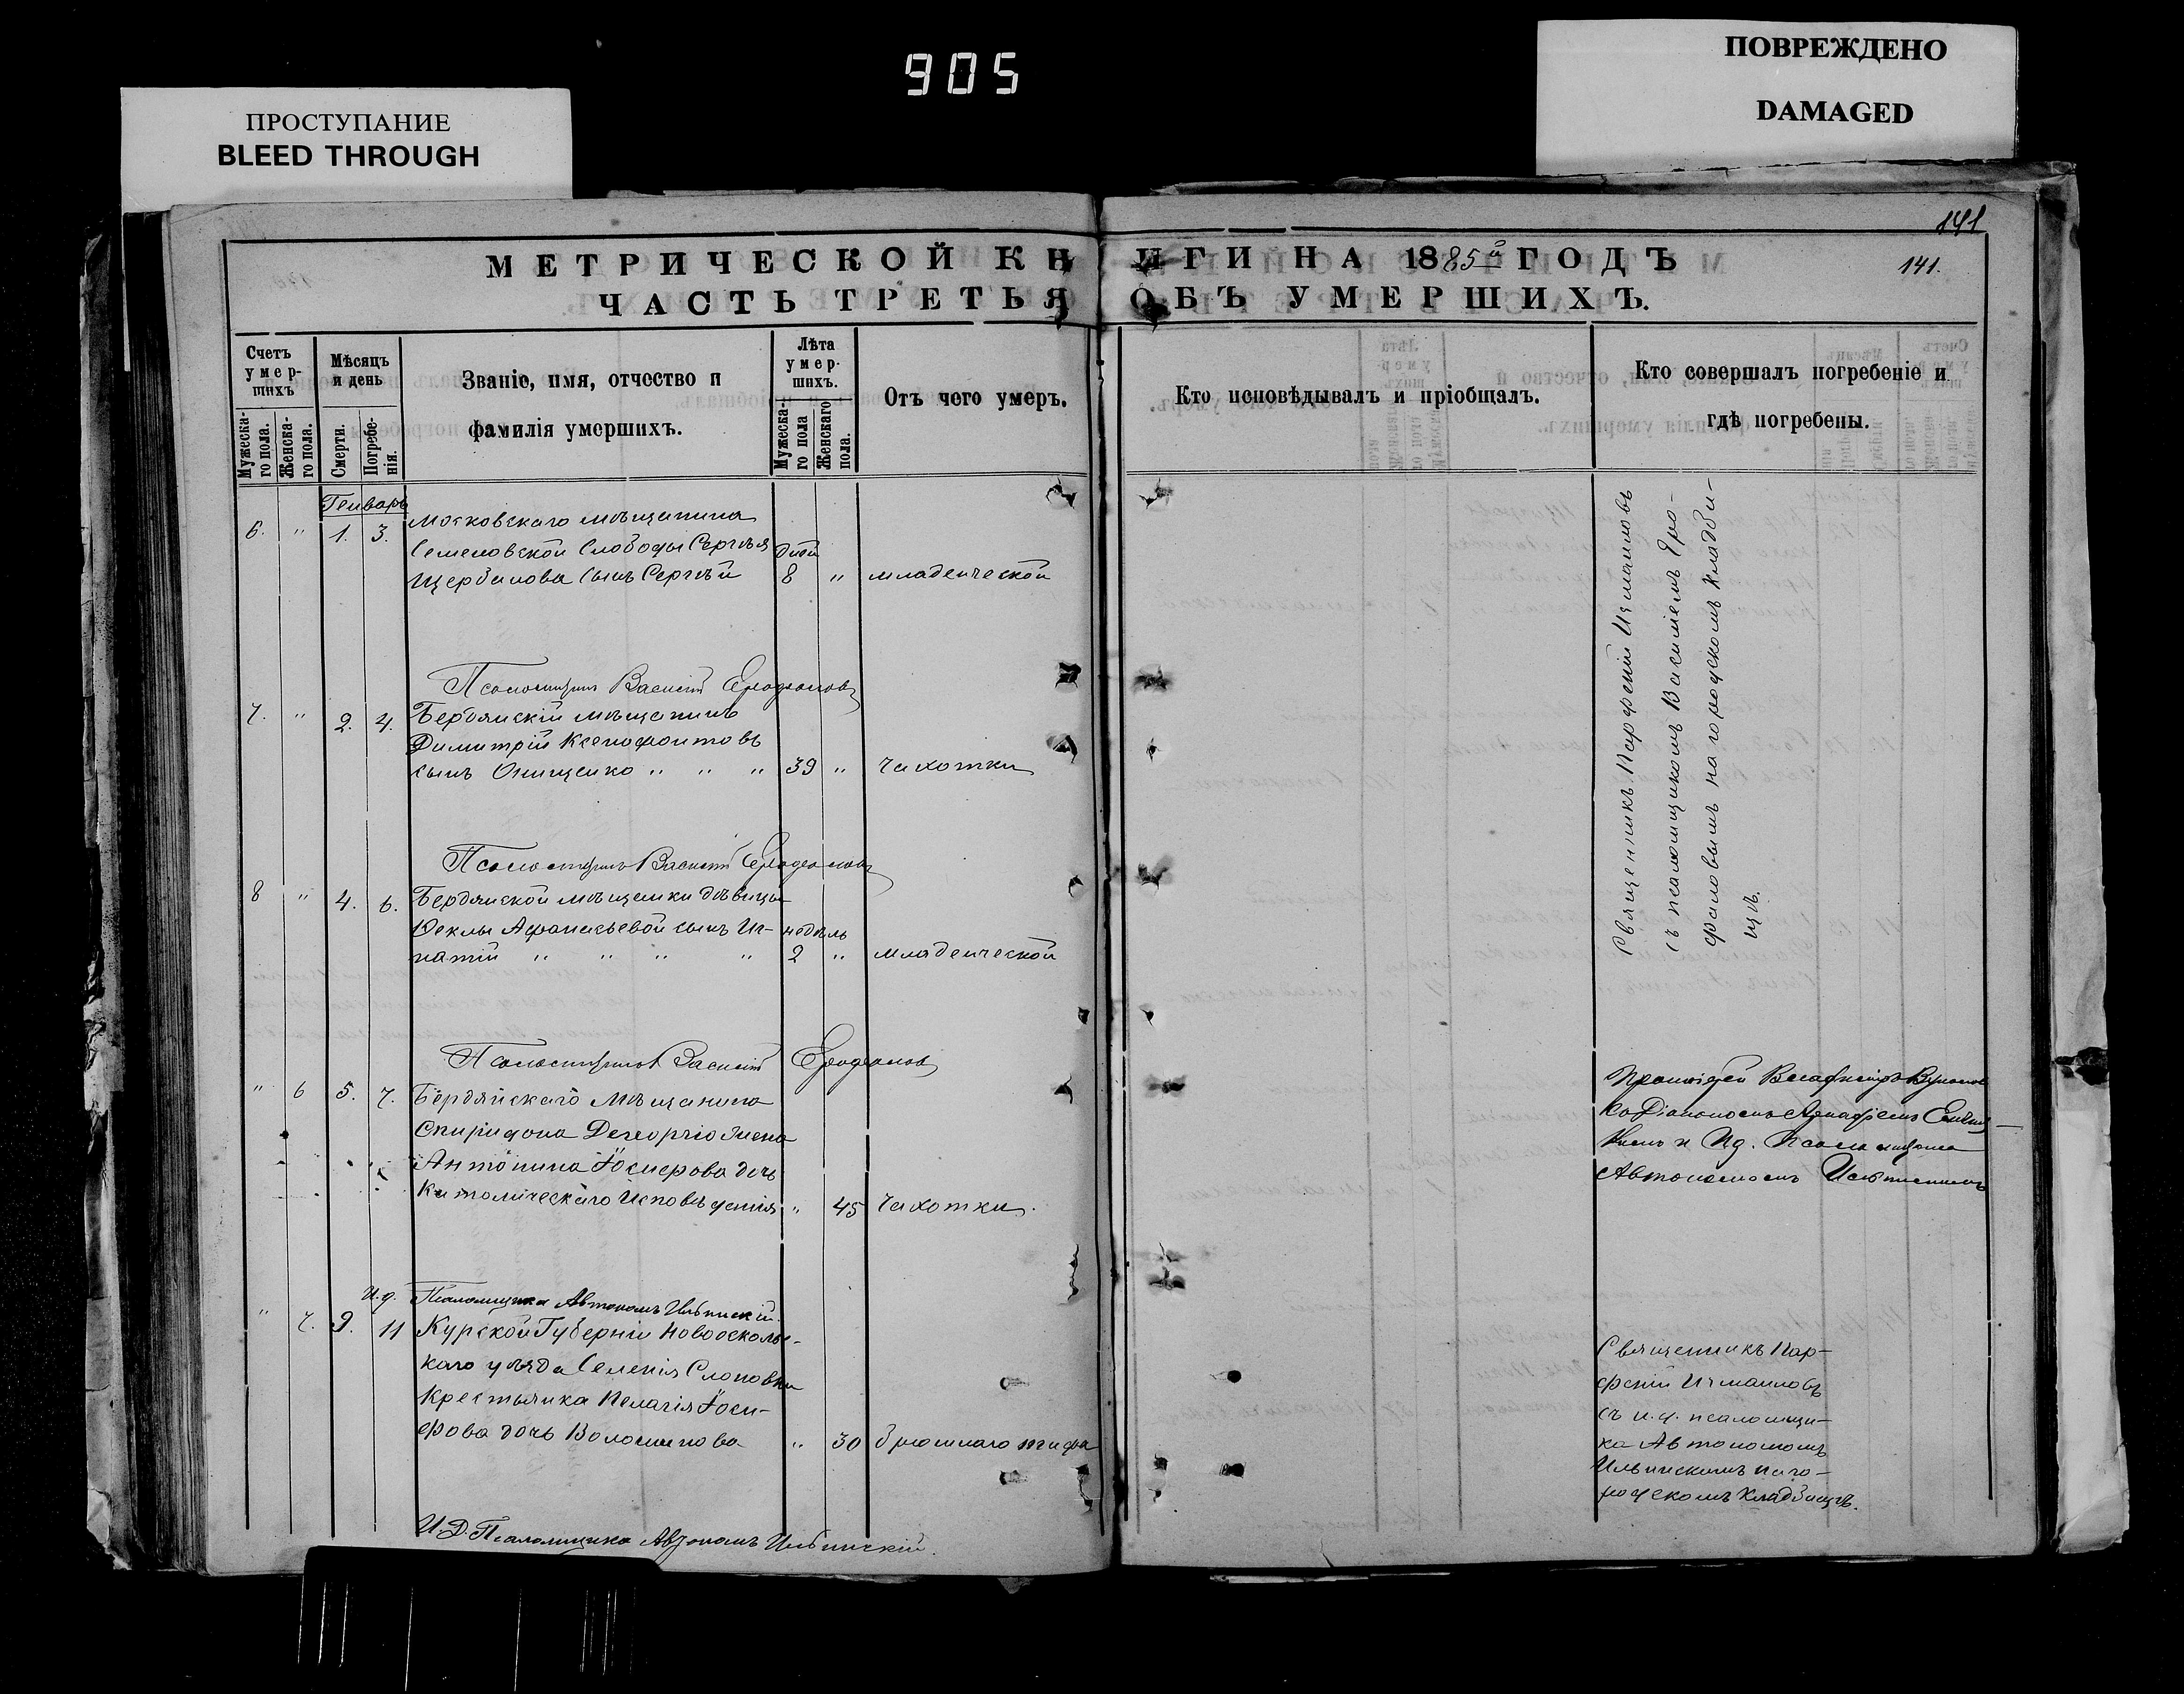 905
ПРОСТУПАНИЕ
BLEED THROUGH
ПОВРЕЖДЕНО
DAMAGED
141
МЕТРИЧЕСКОЙ КНИГИ НА 1885й ГОДЪ
141.
ЧАСТЬ ТРЕТЬЯ ОБЪ УМЕРШИХЪ.
Счетъ умершихъ
Мужескаго пола.
Женскаго пола.
Мѣсяцъ и день
Смерти.
Погребенія.
Званіе, имя, отчество и
фамилія умершихъ.
Лѣта умершихъ.
Мужескаго пола
Женскаго пола.
Отъ чего умеръ.
Кто исповѣдывалъ и пріобщалъ.
Кто совершалъ погребеніе и
гдѣ погребены.
Генварь
6. " 1. 3. Московскаго мѣщанина
Семеновской Слободы Сергѣя
Щербакова сынъ Сергѣй 8 " младенческой
Священникъ Парфеній Измаиловъ
съ псаломщикомъ Василіемъ Еро-
фаловымъ на городскомъ кладби-
щѣ.
Псаломщикъ Василій
7. " 2. 4. Бердянскій мѣщанинъ
Димитрій Ксенофонтовъ
сынъ Онищенко " " " 39 " Чахотки
Псаломщикъ Василій
8 " 4. 6. Бердянской мѣщанки дѣвицы
Феклы Афанасьевой сынъ Иг- недѣль
натій " " " " 2 " младенческой
Псаломщикъ Василій
" 6 5. 7. Бердянскаго Мѣщанина
Спиридона жена
Антонина Іосифова дочь
Католическаго Исповѣданія " 45 Чахотки.
Протоіерей
Діакономъ
и Ид. Псаломщика
Автономомъ Ильинскимъ
И.д. Псаломщика Автономъ Ильинскій.
" 7. 9. 11 Курской Губерніи Новооскольс-
каго уѣзда Селенія Слоновки
Крестьянка Пелагія Іоси-
фова дочь Волошинова " 30 брюшнаго тифа
Священникъ Пар-
феній Измаиловъ
съ и.д. псаломщи-
ка Автономомъ
Ильинскимъ на го-
родскомъ кладбищѣ.
И.Д. Псаломщика Автономъ Ильинскій.